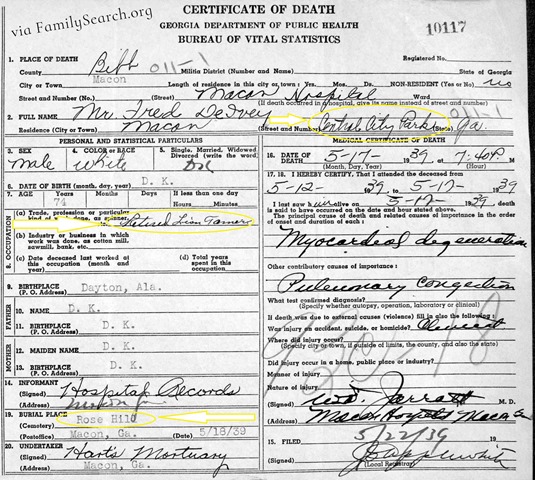 via FamilySearch.org
CERTIFICATE OF DEATH
GEORGIA DEPARTMENT OF PUBLIC HEALTH
BUREAU OF VITAL STATISTICS
10117
1. PLACE OF DEATH
Registered No.
County Bibb 011-1 Militia District (Number and Name) State of Georgia
City or Town Macon Length of residence in this city or town: Yrs. Mos. Ds. NON-RESIDENT (Yes or No) no
Street and Number) Macon Hospital Ward
(If death occurred in a hospital, give its name instead of street and number)
2. FULL NAME Mr. Fred DeIvey
Residence (City or Town) Macon (Street and Number) Central City Park (State) Ga.
PERSONAL AND STATISTICAL PARTICULARS
3. SEX male
4. COLOR or RACE white
5. Single, Married, Widowed Divorced (write the word) DK
6. DATE OF BIRTH (month, day, year) D. K.
7. AGE Years 74 Months Days If less than one day
Hours Minutes
8. OCCUPATION
(a) Trade, profession or particular kind of work done, as spinner, Retired Lion Tamer
(b) Industry or business in which work was done, as cotton mill, sawmill, bank, etc.
(c) Date deceased last worked at this occupation (month and year)
(d) Total years spent in this occupation
9. BIRTHPLACE (P. O. Address) Dayton, Ala.
FATHER
10. NAME D. K.
11. BIRTHPLACE (P. O. Address) D. K.
MOTHER
12. MAIDEN NAME D. K.
13. BIRTHPLACE (P. O. Address) D. K.
14. INFORMANT (Signed) Hospital Records
(Address)
19. BURIAL PLACE (Cemetery) Rose Hill
Postoffice Macon, Ga. (Date) 5/18/39
20. UNDERTAKER (Signed) Harts Mortuary
(Address) Macon, Ga.
MEDICAL CERTIFICATE OF DEATH
16. DATE OF DEATH 5-17- 1939 at 7:40P M
(Month, Day, Year) (Hour)
17. 18. I HEREBY CERTIFY, That I attended the deceased from
5-12- 1939 to 5-17- 1939
I last saw alive on 5-17 1939, death
is said to have occurred on the date and hour stated above.
The principal cause of death and related causes of importance in the order of onset and duration of each:
Myocardial degeneration
Other contributory causes of importance:
Pulmonary Congestion
What test confirmed diagnosis?
(Specify whether autopsy, operation, laboratory or clinical)
If death was due to external causes (violence) fill in also the following:
Was injury an accident, suicide, or homicide?
Where did injury occur?
(If out of city limits, so state, and give county and state)
Did injury occur in a home, public place or industry?
Manner of injury
Nature of injury
(Signed) Jarratt M. D.
(Address) Macon Hospital Macon Ga
15. FILED 5/22/39 19
(Signed)
(Local Registrar)